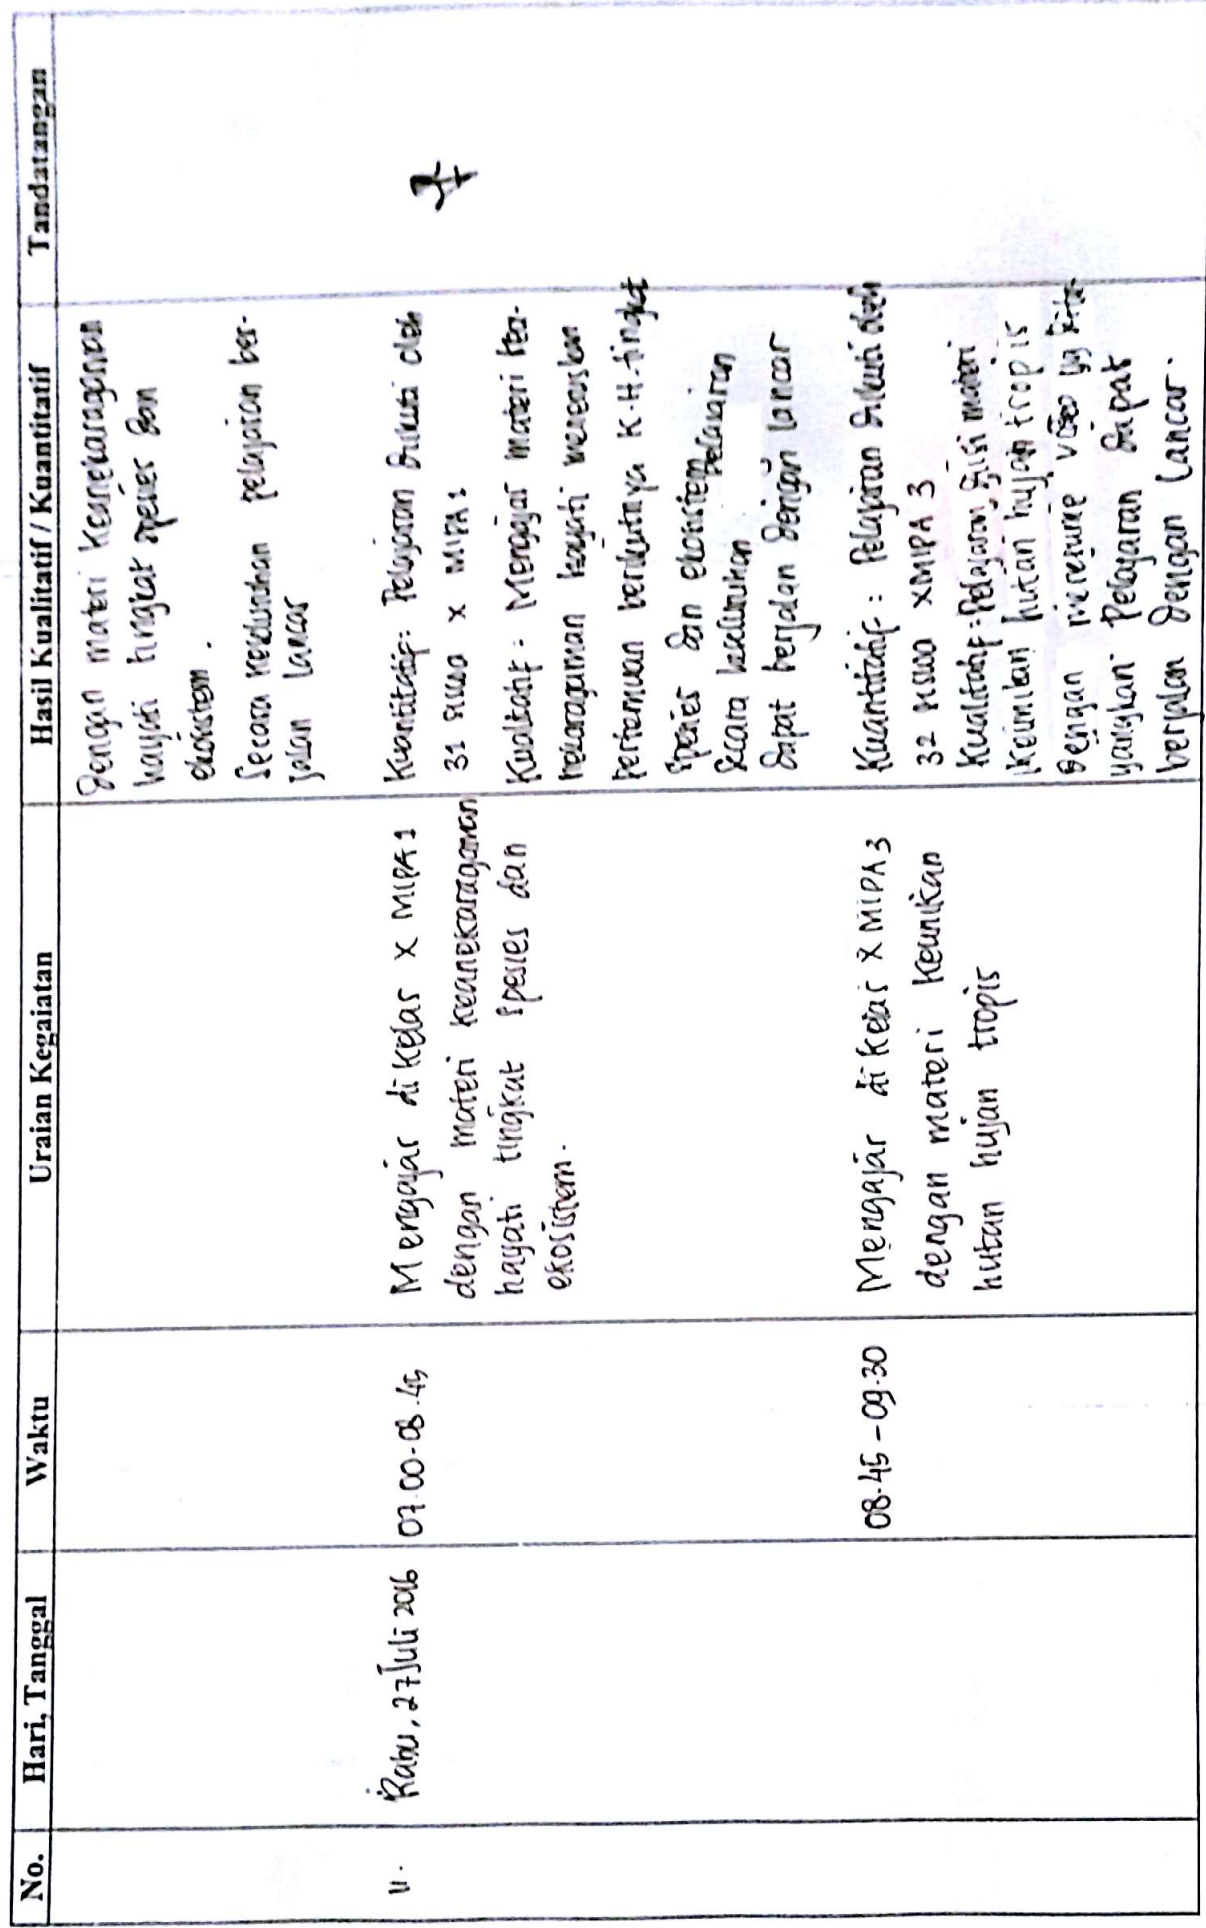 No. Hari, Tanggal Waktu Uraian Kegaiatan Hasil Kualitatif / Kuantitatif Tandatangan
dengan materi keanekaragaman
hayati tingkat spesies dan
ekosistem.
Secara keseluruhan pelajaran ber-
jalan lancar
11. Rabu, 27 Juli 2016 07.00-08.45 Mengajar di kelas X MIPA 1
dengan materi keanekaragaman
hayati tingkat spesies dan
ekosistem.
Kuantitatif: Pelajaran diikuti oleh
31 siswa X MIPA 1
Kualitatif: Mengajar materi kea-
nekaragaman hayati
pertemuan berikutnya K.H. tingkat
spesies dan ekosistem
Secara keseluruhan pelajaran
dapat berjalan dengan lancar
08.45-09.30 Mengajar di kelas X MIPA 3
dengan materi keunikan
hutan hujan tropis
Kuantitatif: Pelajaran diikuti oleh
32 siswa X MIPA 3
Kualitatif: Pelajaran diisi materi
keunikan hutan hujan tropis
dengan meresume video yg dita-
yangkan. Pelajaran dapat
berjalan dengan lancar.